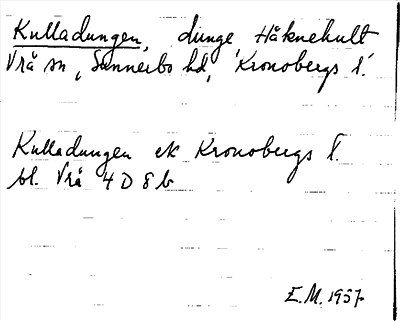 Kulladungen, dunge, Håknehult
Vrå sn, Sunnerbo hd, Kronobergs l.
Kulladungen ek Kronobergs l.
bl. Vrå 4 D 8 b
E.M. 1957